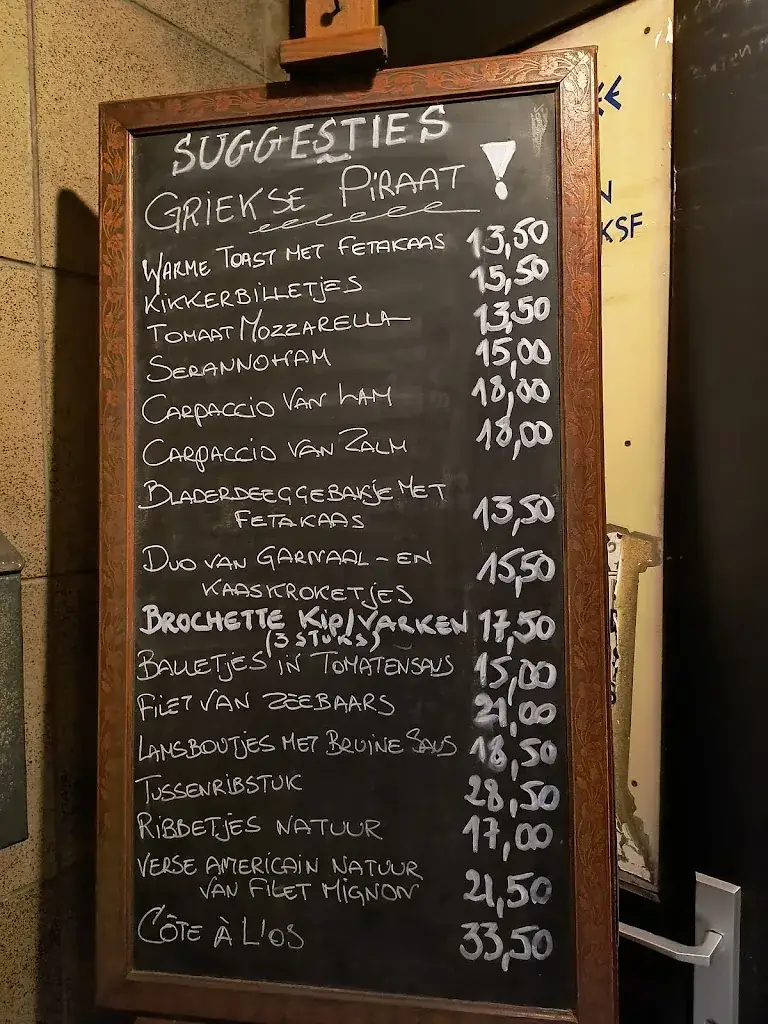 SUGGESTIES
GRIEKSE PIRAAT !
WARME TOAST MET FETAKAAS 13,50
KIKKERBILLETJES 15,50
TOMAAT MOZZARELLA 13,50
SERANNOHAM 15,00
CARPACCIO VAN LAM 18,00
CARPACCIO VAN ZALM 18,00
BLADERDEEGGEBAKJE MET
FETAKAAS 13,50
DUO VAN GARNAAL - EN 15,50
KAASKROKETJES
BROCHETTE KIP/VARKEN 17,50
(3 STUKS)
BALLETJES IN TOMATENSAUS 15,00
FILET VAN ZEEBAARS 21,00
LAMSBOUTJES MET BRUINE SAUS 18,50
TUSSENRIBSTUK 28,50
RIBBETJES NATUUR 17,00
VERSE AMERICAIN NATUUR
VAN FILET MIGNON 21,50
CÔTE À L'OS 33,50